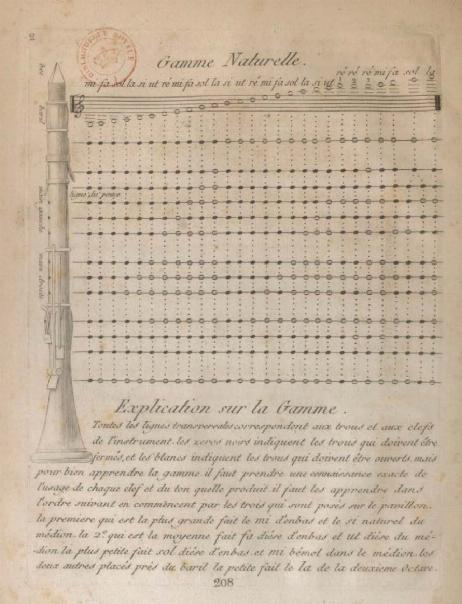 Gamme Naturelle.
ré ré ré mi fa sol la
mi fa sol la si ut ré mi fa sol la si ut ré mi fa sol la si ut
bec
baril
ligne du pouce
main gauche
main droite
Explication sur la Gamme.
Toutes les lignes transversales correspondent aux trous et aux clefs
de l'instrument. les zeros noirs indiquent les trous qui doivent être
fermés, et les blancs indiquent les trous qui doivent être ouverts. mais
pour bien apprendre la gamme il faut prendre une connaissance exacte de
l'usage de chaque clef et du ton quelle produit. il faut les apprendre dans
l'ordre suivant en commencent par les trois qui sont posés sur le pavillon.
la premiere qui est la plus grande fait le mi d'enbas et le si naturel du
médion. la 2e. qui est la moyenne fait fa diése d'enbas et ut diése du mé-
dion. la plus petite fait sol diése d'enbas et mi bémol dans le médion. les
deux autres placés prés du baril la petite fait le la de la deuxieme octave.
208